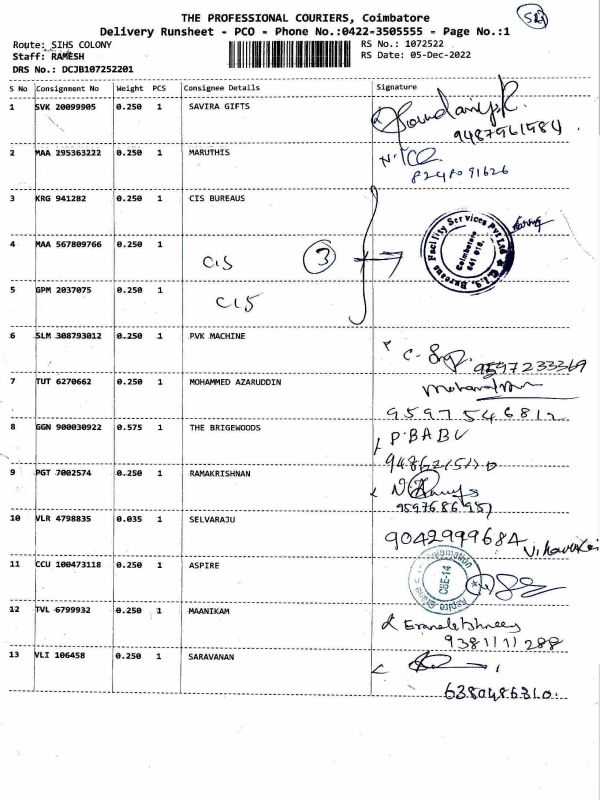 THE PROFESSIONAL COURIERS, Coimbatore
Delivery Runsheet - PCO - Phone No.:0422-3505555 - Page No.:1
Route: SIHS COLONY RS No.: 1072522
Staff: RAMESH RS Date: 05-Dec-2022
DRS No.: DCJB107252201
S No Consignment No Weight PCS Consignee Details Signature
1 SVK 20099905 0.250 1 SAVIRA GIFTS
9487961984
2 MAA 295363222 0.250 1 MARUTHIS
3 KRG 941282 0.250 1 CIS BUREAUS
C.I.S. Bureaus Facility Services Pvt Ltd
Coimbatore
641 018.
4 MAA 567809766 0.250 1 CIS 3
5 GPM 2037075 0.250 1 CIS
6 SLM 308793012 0.250 1 PVK MACHINE
9597233369
7 TUT 6270662 0.250 1 MOHAMMED AZARUDDIN
9597546812
8 GGN 900030922 0.575 1 THE BRIGEWOODS P.BABU
9 PGT 7002574 0.250 1 RAMAKRISHNAN
10 VLR 4798835 0.035 1 SELVARAJU 9042999684
11 CCU 100473118 0.250 1 ASPIRE
CBE-14
12 TVL 6799932 0.250 1 MAANIKAM
9381111288
13 VLI 106458 0.250 1 SARAVANAN
6380486310